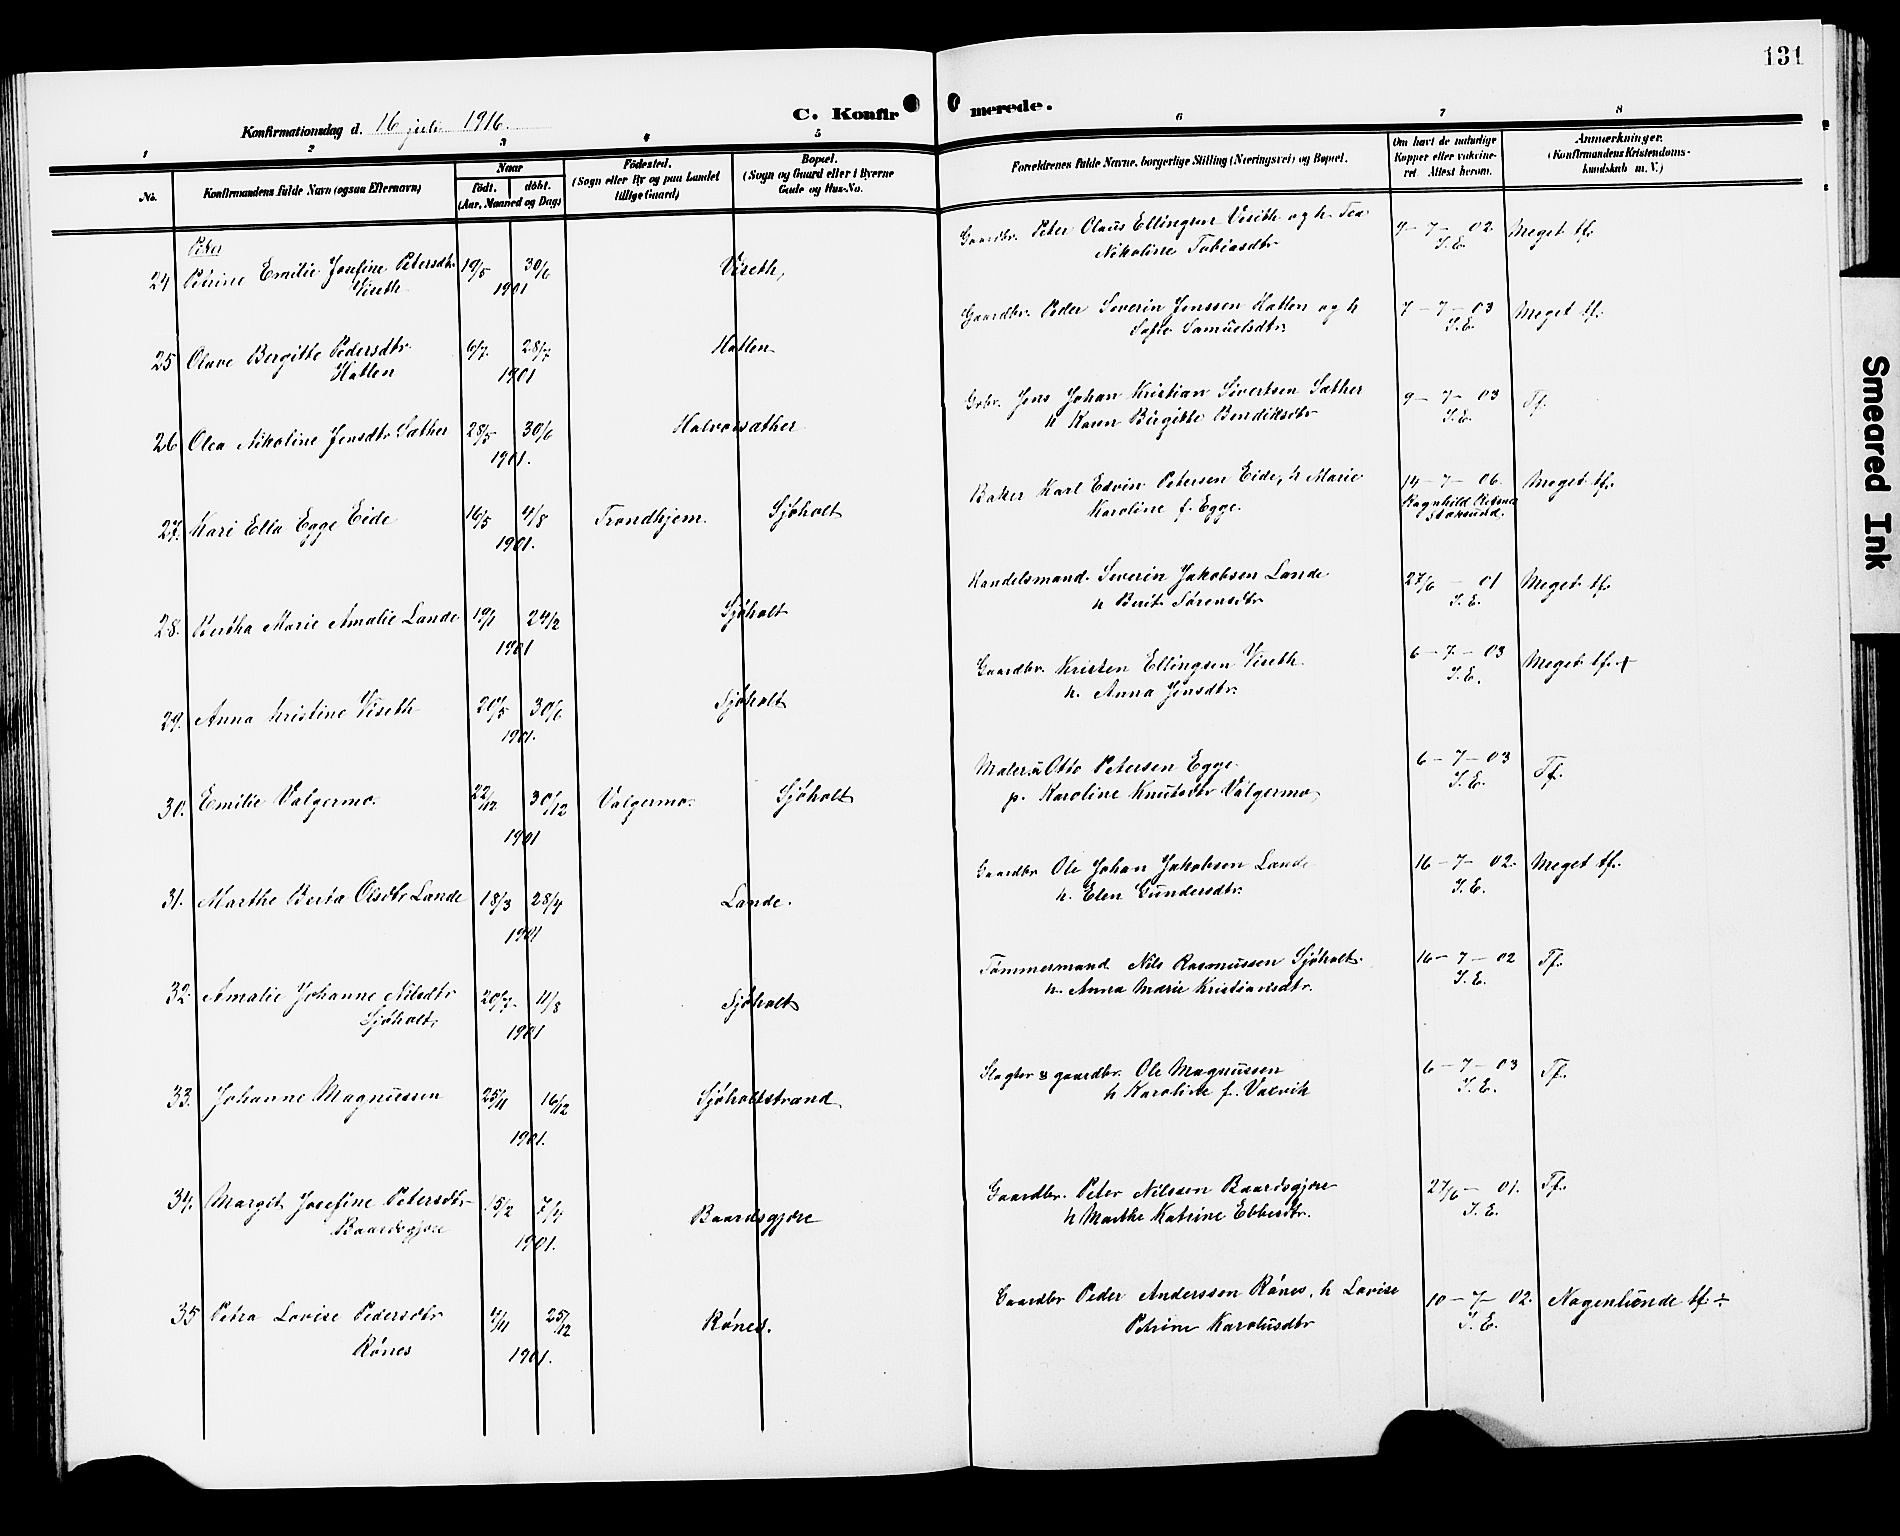 131
Konfirmationsdag d. 16 juli 1916.
C. Konfir merede.
1 2 3 4 5 6 7 8
No.
Konfirmandens fulde Navn (ogsaa Efternavn)
Naar
født. døbt.
(Aar, Maaned og Dag)
Fødested.
(Sogn eller By og paa Landet
tillige Gaard)
Bopæl.
(Sogn og Gaard eller i Byerne
Gade og Hus-No.
Forældrenes fulde Navne, borgerlige Stilling (Næringsvei) og Bopæl.
Om havt de naturlige
Kopper eller vaksine-
ret Attest herom.
Anmærkninger.
(Konfirmandens Kristendoms-
kundskab m. V.)
Peter
24 Petrine Emilie Josefine Petersdtr. 19/5 30/6 Viseth, Gaardbr. Peter Olaus Ellingsen Viseth og h. 9-7-02. Meget tf.
Viseth 1901 Nikoline Tobiasdtr I.E.
25 Olave Bergitte Pedersdtr. 6/7. 28/7 Hatlen Gaardbr. Peder Severin Jenssen Hatlen og h 7-7-03 Meget tf.
Hatlen 1901 Sofie Samuelsdtr. I.E.
26 Olea Nikoline Jensdtr Sæther 28/5 30/6 Halvorsæther Grbr. Jens Johan Kristian Sivertsen Sæther 9-7-03 Tf.
1901. h Karen Birgitte Bendiksdtr I.E.
27. Kari Ella Egge Eide 16/5 4/8 Trondhjem. Sjøholt Baker Karl Edvin Petersen Eide, h Marie 14-7-06. Meget tf.
1901. Karoline f. Egge. Ragnhild
28. Bertha Marie Amalie Lande 19/1 24/2 Sjøholt Handelsmand Severin Jakobsen Lande 27/6 - 01 Meget tf.
1901 h Berit Sørensdtr I.E.
29. Anna Kristine Viseth 20/5 30/6 Sjøholt Gaardbr. Kristen Ellingsen Viseth. 6-7-03 Meget tf.+
1901. h. Anna Jensdtr. I.E.
30. Emilie Valgermo. 22/12 30/12 Valgermo. Sjøholt Maler: Otto Petersen Egge. 6-7-03 Tf.
1901 p. Karoline Knutsdtr Valgermo, I.E.
31. Marthe Berta Olsdtr Lande 18/3 28/4 Lande. Gaardbr Ole Johan Jakobsen Lande 16-7-02. Meget tf.
1901 h. Elen Gundersdtr. I.E.
32. Amalie Johanne Nilsdtr 20/7. 11/8 Sjøholt Tømmermand Nils Rasmussen Sjøholt. 16-7-02 Tf.
Sjøholt, 1901 h. Anna Marie Kristiansdtr. I.E.
33. Johanne Magnussen 25/11 16/12 Sjøholtstrand Slagter & gaardbr. Ole Magnussen 6-7-03 Tf.
1901. h Karoline f. Valvik I.E.
34. Margit Josefine Petersdtr 15/2 7/4 Baardsgjære Gaardbr. Peter Nilssen Baardsgjære 27/6 - 01. Tf.
Baardsgjære 1901. h Marthe Katrine Ebbesdtr. I.E.
35 Petra Lovise Pedersdtr 4/11 25/12 Rønes. Gaardbr Peder Anderssen Rønes, h Lovise 10-7-02. Nogenlunde tf. ÷
Rønes 1901. Petrine Karolusdtr I.E.
Smeared Ink